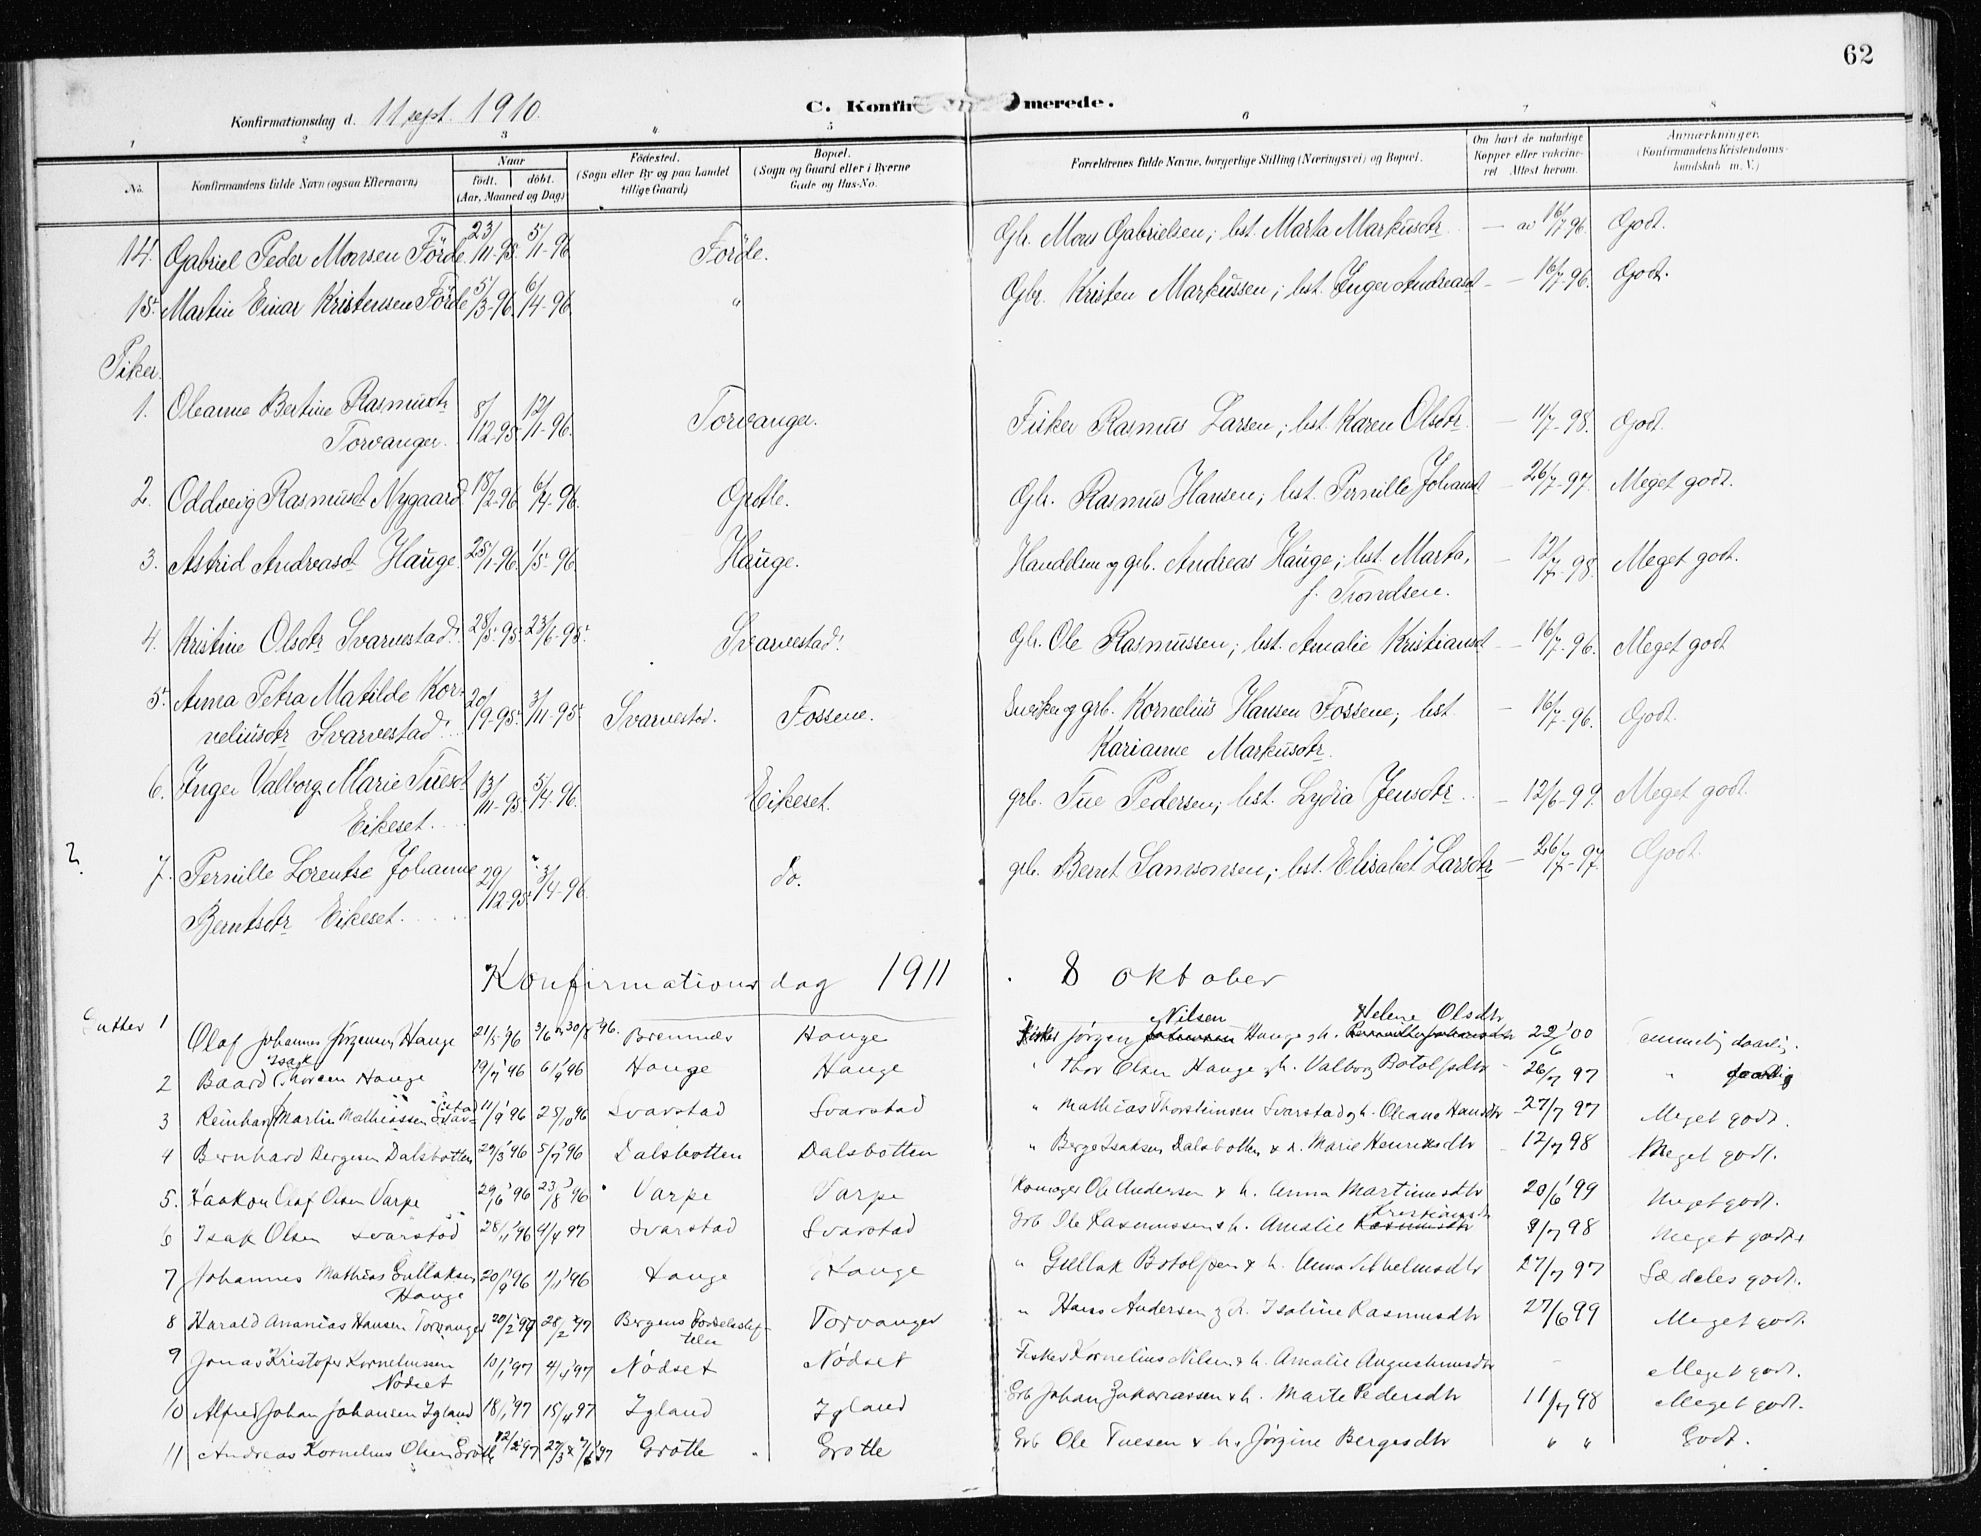 62
Konfirmationsdag d. 11 sept. 1910. C. Konfir merede.
1 2 3 " 5 6 7 8
No. Konfirmandens fulde Navn (ogsaa Efternavn) Naar født. døbt. (Aar, Maaned og Dag) Fødested. (Sogn eller By og paa Landet tillige Gaard) Bopæl. (Sogn og Gaard eller i Byerne Gade og Hus-No. Forældrenes fulde Navne, borgerlige Stilling (Næringsvei) og Bopæl. Om havt de naturlige Kopper eller vakcineret Attest herom. Anmærkninger. (Konfirmandens Kristendomskundskab m. V.)
14. Gabriel Peder Monsen Förde 23/11-95. 5/1-96 Förde. Gb. Mons Gabrielsen; hst. Marta Markusdtr. — av 16/7 96. Godt.
15. Martin Einar Kristensen Förde 5/3-96. 6/4-96. " Gbr. Kristen Markussen; hst. Inger Andreasd — 16/7-96. Godt.
Piker.
1. Oleanne Bertine Rasmusdtr
Torvanger. 8/12-95 12/1-96. Torvanger. Fisker Rasmus Larsen; hst. Karen Olsdtr. — 11/7-98. Godt.
2. Oddveig Rasmusdt Nygaard 18/2-96 6/4-96. Grotle. Gb. Rasmus Hansen; hst. Pernille Johansd — 26/7-97. Meget godt.
3. Astrid Andreasdt Hauge. 25/1-96. 1/5-96 Hauge. Handelsm og grb. Andreas Hauge; hst. Marta, — 12/7-98. Meget godt.
f. Trondsen.
4. Kristine Olsdtr Svarvestad. 28/5-95. 23/6-95. Svarvestad. Gb. Ole Rasmussen; hst. Amalie Kristiansdt — 16/7-96. Meget godt
5. Anna Petra Matilde Kor-
neliusdtr Svarvestad. 20/9-95. 3/11-95. Svarvestad. Fossene. Snekker og grb. Kornelius Hansen Fossene; hst. — 16/7-96. Godt.
Karianne Markusdtr.
6. Inger Valborg Marie Tuesdt
Eikeset. 13/11-95. 5/4-96. Eikeset. grb. Tue Pedersen; hst. Lydia Jensdtr. — 12/6-99. Meget godt.
?
7. Pernille Lorentse Johanne
Berntsdtr Eikeset. 29/12-95. 3/4-96. do. grb. Bernt Samsonsen; hst. Elisabet Larsdtr — 26/7-97. Godt.
Konfirmationsdag 1911. 8 oktober
Gutter 1 Olaf Johannes Jørgensen Hauge 21/5 96 3/6 30/8 '96. Bremnes Hauge Fisker Jørgen Nilsen Hauge & h. Helene Olsdtr 22/6 '00 Temmelig daarlig.
2 Baard Isak Thorsen Hauge 19/7 '96 6/9 96 Hauge Hauge " Thor Olsen Hauge & h. Valborg Botolfsdtr 26/7 97 "
3 Reinhard Martin Mathiassen Svarstad 11/9 '96 25/10 96 Svarstad Svarstad " Mathias Thorsteinsen Svarstad & h. Oleana Hansdtr 27/7 97 Meget godt.
4 Bernhard Bergesen Dalsbotten 29/3 '96 5/7 '96 Dalsbotten Dalsbotten " Berge Isaksen Dalsbotten & h. Marie Henriksdtr 12/7 98 Meget godt.
5. Haakon Olaf Olsen Varpe 29/6 '96 23/8 '96 Varpe Varpe Ole Andersen & h. Anna Martinusdtr 20/6 '99 Meget godt.
6 Isak Olsen Svarstad 28/11 '96 4/4 97 Svarstad Svarstad Grb Ole Rasmussen & h. Amalie Kristiansdtr 9/7 98 Meget godt.
7 Johannes Mathias Gullaksen
Hauge 20/9 '96 1/11 '96 Hauge Hauge " Gullak Botolfsen & h. Anna Vilhelmsdtr 27/7 97 Særdeles godt.
8 Harald Ananias Hansen Torvanger 20/2 '97 28/2 '97 Bergens Fødselsstif-
telse Torvanger " Hans Andersen & h. Isaline Rasmusdtr 27/6 99 Meget godt.
9 Jonas Kristofer Korneliussen
Nødset 10/1 '97 4/4 '97 Nødset Nødset Fisker Kornelius Nilsen & h. Amalie Augustinusdtr - Meget godt.
10 Alfred Johan Johansen Igland 18/1 '97 15/4 97 Igland Igland Grb Johan Zakariassen & h. Marte Pedersdtr 11/7 98 Meget godt.
11 Andreas Kornelius Olsen Grotle 12/2 '97 27/3 & 7/6 '97 Grotle " Grotle Grb Ole Tuesen & h. Jørgine Bergesdtr " " Godt.